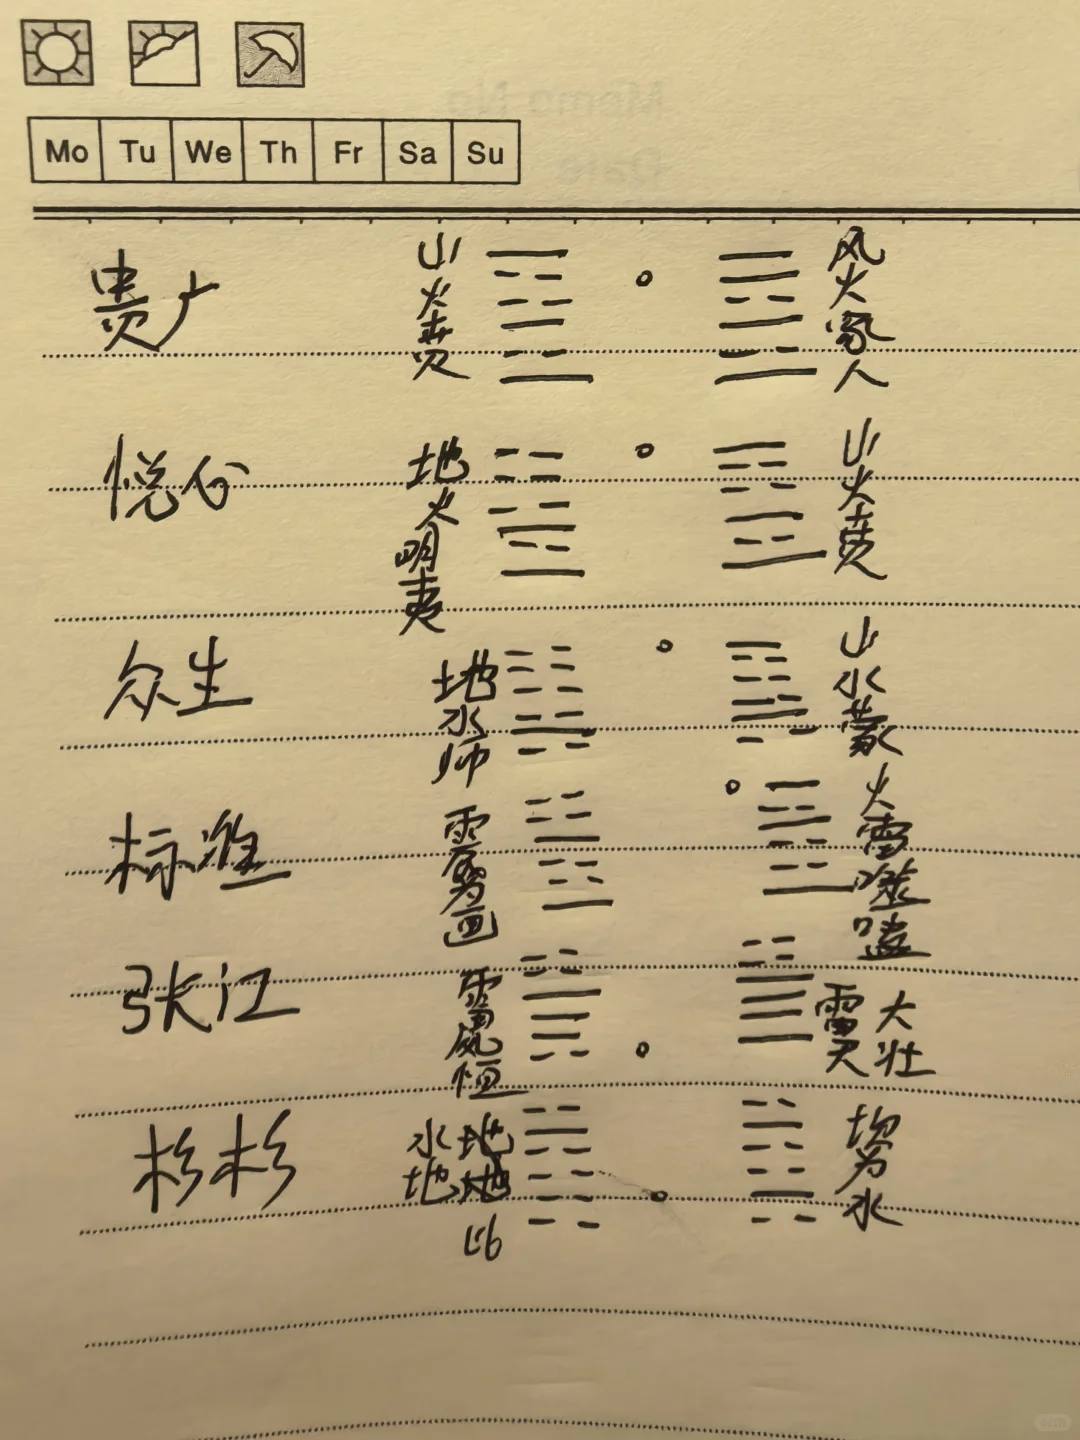 Mo Tu We Th Fr Sa Su
贵广 山火贲 风火家人
悦心 地火明夷 山火贲
众生 地水师 山水蒙
标准 震为雷 火雷噬嗑
张江 雷风恒 雷天大壮
杉杉 水地比 坎为水